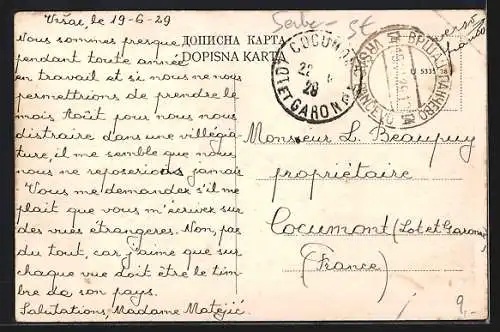 Vršac, le 19-6-29
Nous sommes presque
pendant toute année
en travail et si nous ne nous
permettrions de prendre le
mois Août pour nous en
distraire dans une villégia-
ture, il me semble que nous
ne nous reposerions jamais
Vous me demandez s'il me
plaît que vous m'écrivez sur
des vues étrangères. Non, pas
du tout, car j'aime que sur
chaque vue doit être le tim-
bre de son pays.
Salutations, Madame Matejić.
ДОПИСНА КАРТА
DOPISNA KARTA
Serbe - 5t
COCUMONT
22
28
LOT ET GARONNE
ВРШАЦ-ПАНЧЕВО
VRŠAC-PANČEVO
verso
Monsieur L. Beaupuy
propriétaire
Cocumont (Lot et Garonne)
(France)
9,-